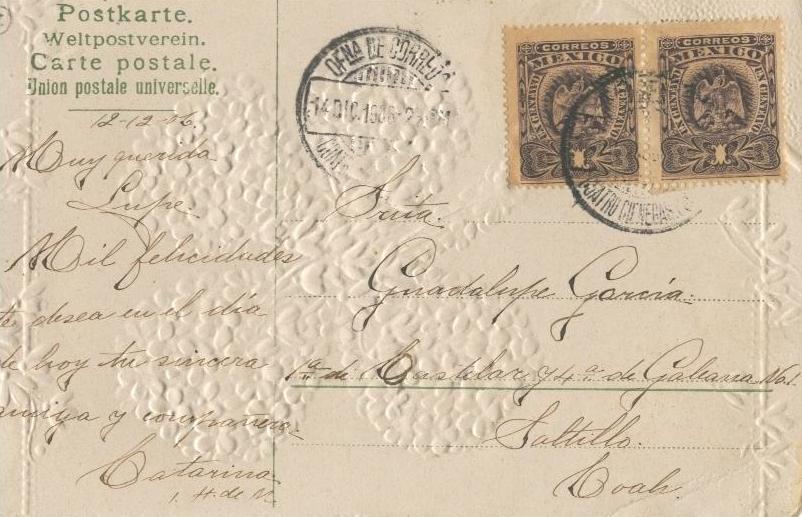 Postkarte.
Weltpostverein.
Carte postale.
Union postale universelle.
12-12-06.
Muy querida
Lupe.
Mil felicidades
te desea en el día
de hoy tu sincera
amiga y compañera.
Catarina
OFNA DE CORREO
14 DIC. 1906
CORREOS
MEXICO
UN CENTAVO
UN CENTAVO
CORREOS
MEXICO
UN CENTAVO
UN CENTAVO
CUATRO CIENEGAS
Srita.
Guadalupe García.
1ª de Castelar y 4ª de Galeana No. 1.
Saltillo.
Coah.